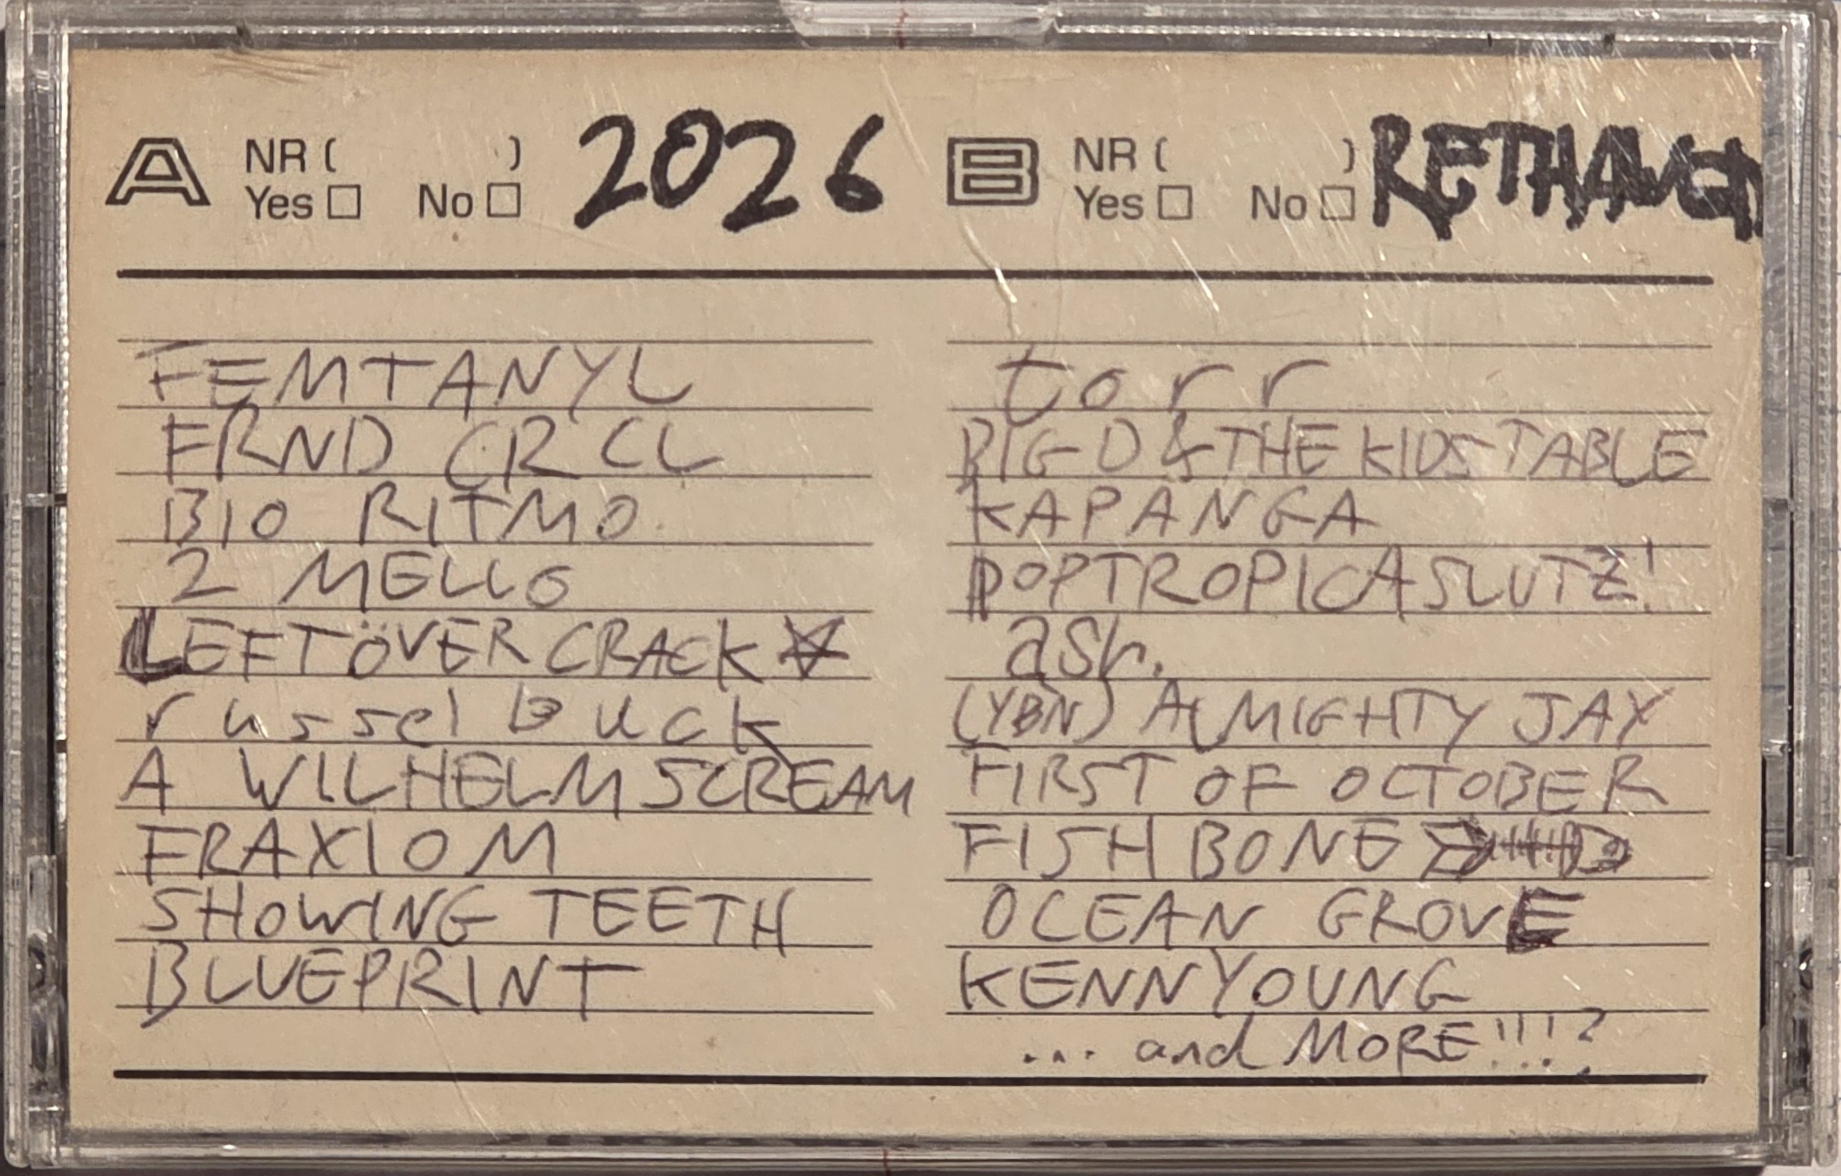 A NR ( ) Yes No 2026
B NR ( ) Yes No RETHAVEN
FEMTANYL
FRND CRCL
BIO RITMO
2 MELLO
LEFTÖVER CRACK
russel buck
A WILHELM SCREAM
FRAXIOM
SHOWING TEETH
BLUEPRINT
torr
BIG D & THE KIDS TABLE
KAPANGA
POPTROPICASLUTZ!
ash.
(YBN) ALMIGHTY JAY
FIRST OF OCTOBER
FISHBONE
OCEAN GROVE
KENNYOUNG
... and MORE!!!?